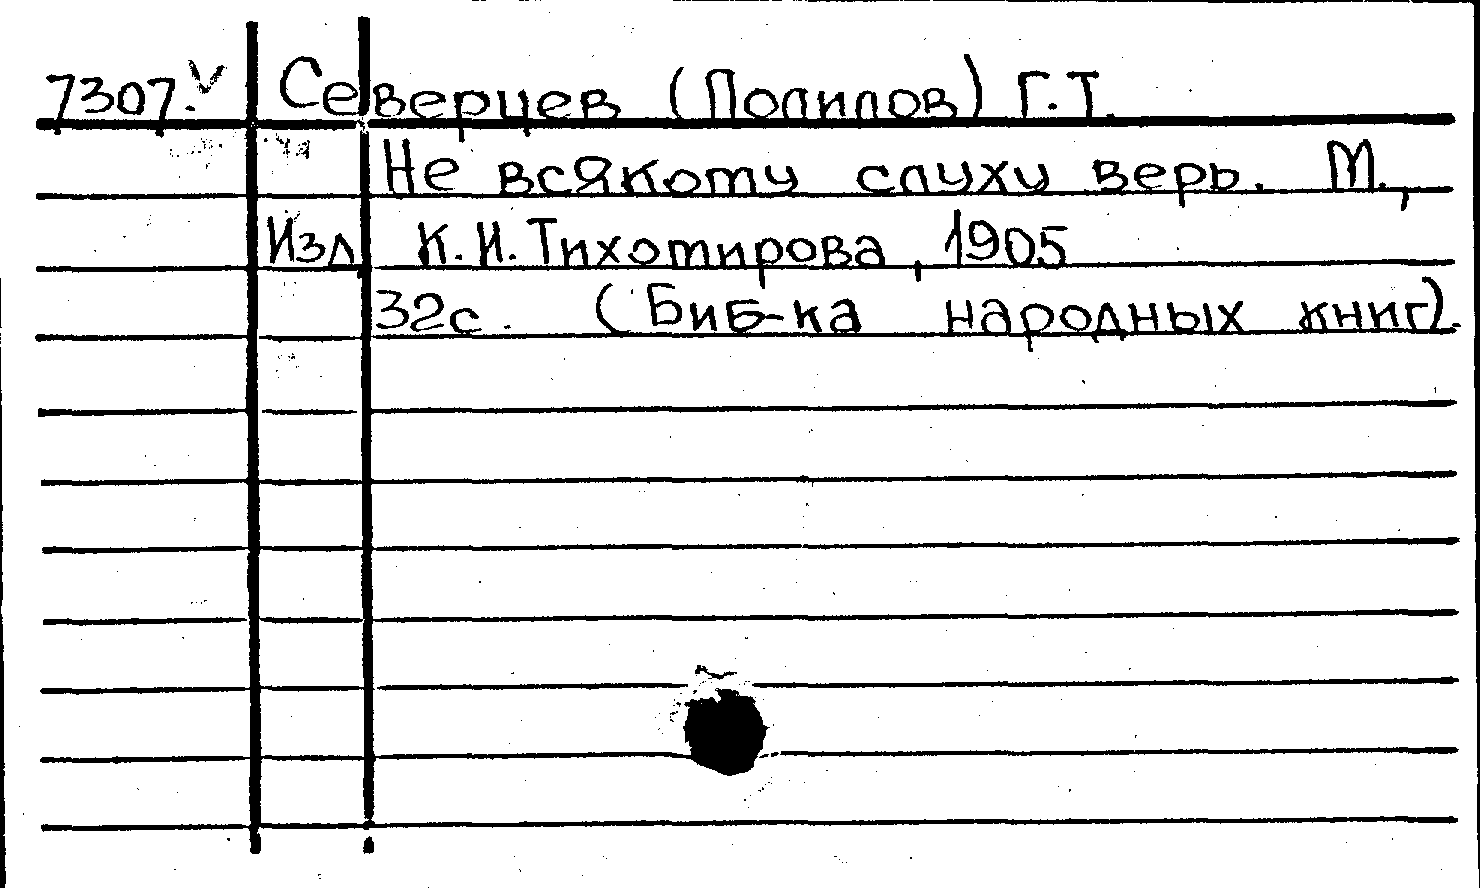 7307. V Северцев (Полилов) Г.Т.
Не всякому слуху верь. М.,
Изд. К.И.Тихомирова, 1905
32с. (Биб-ка народных книг).